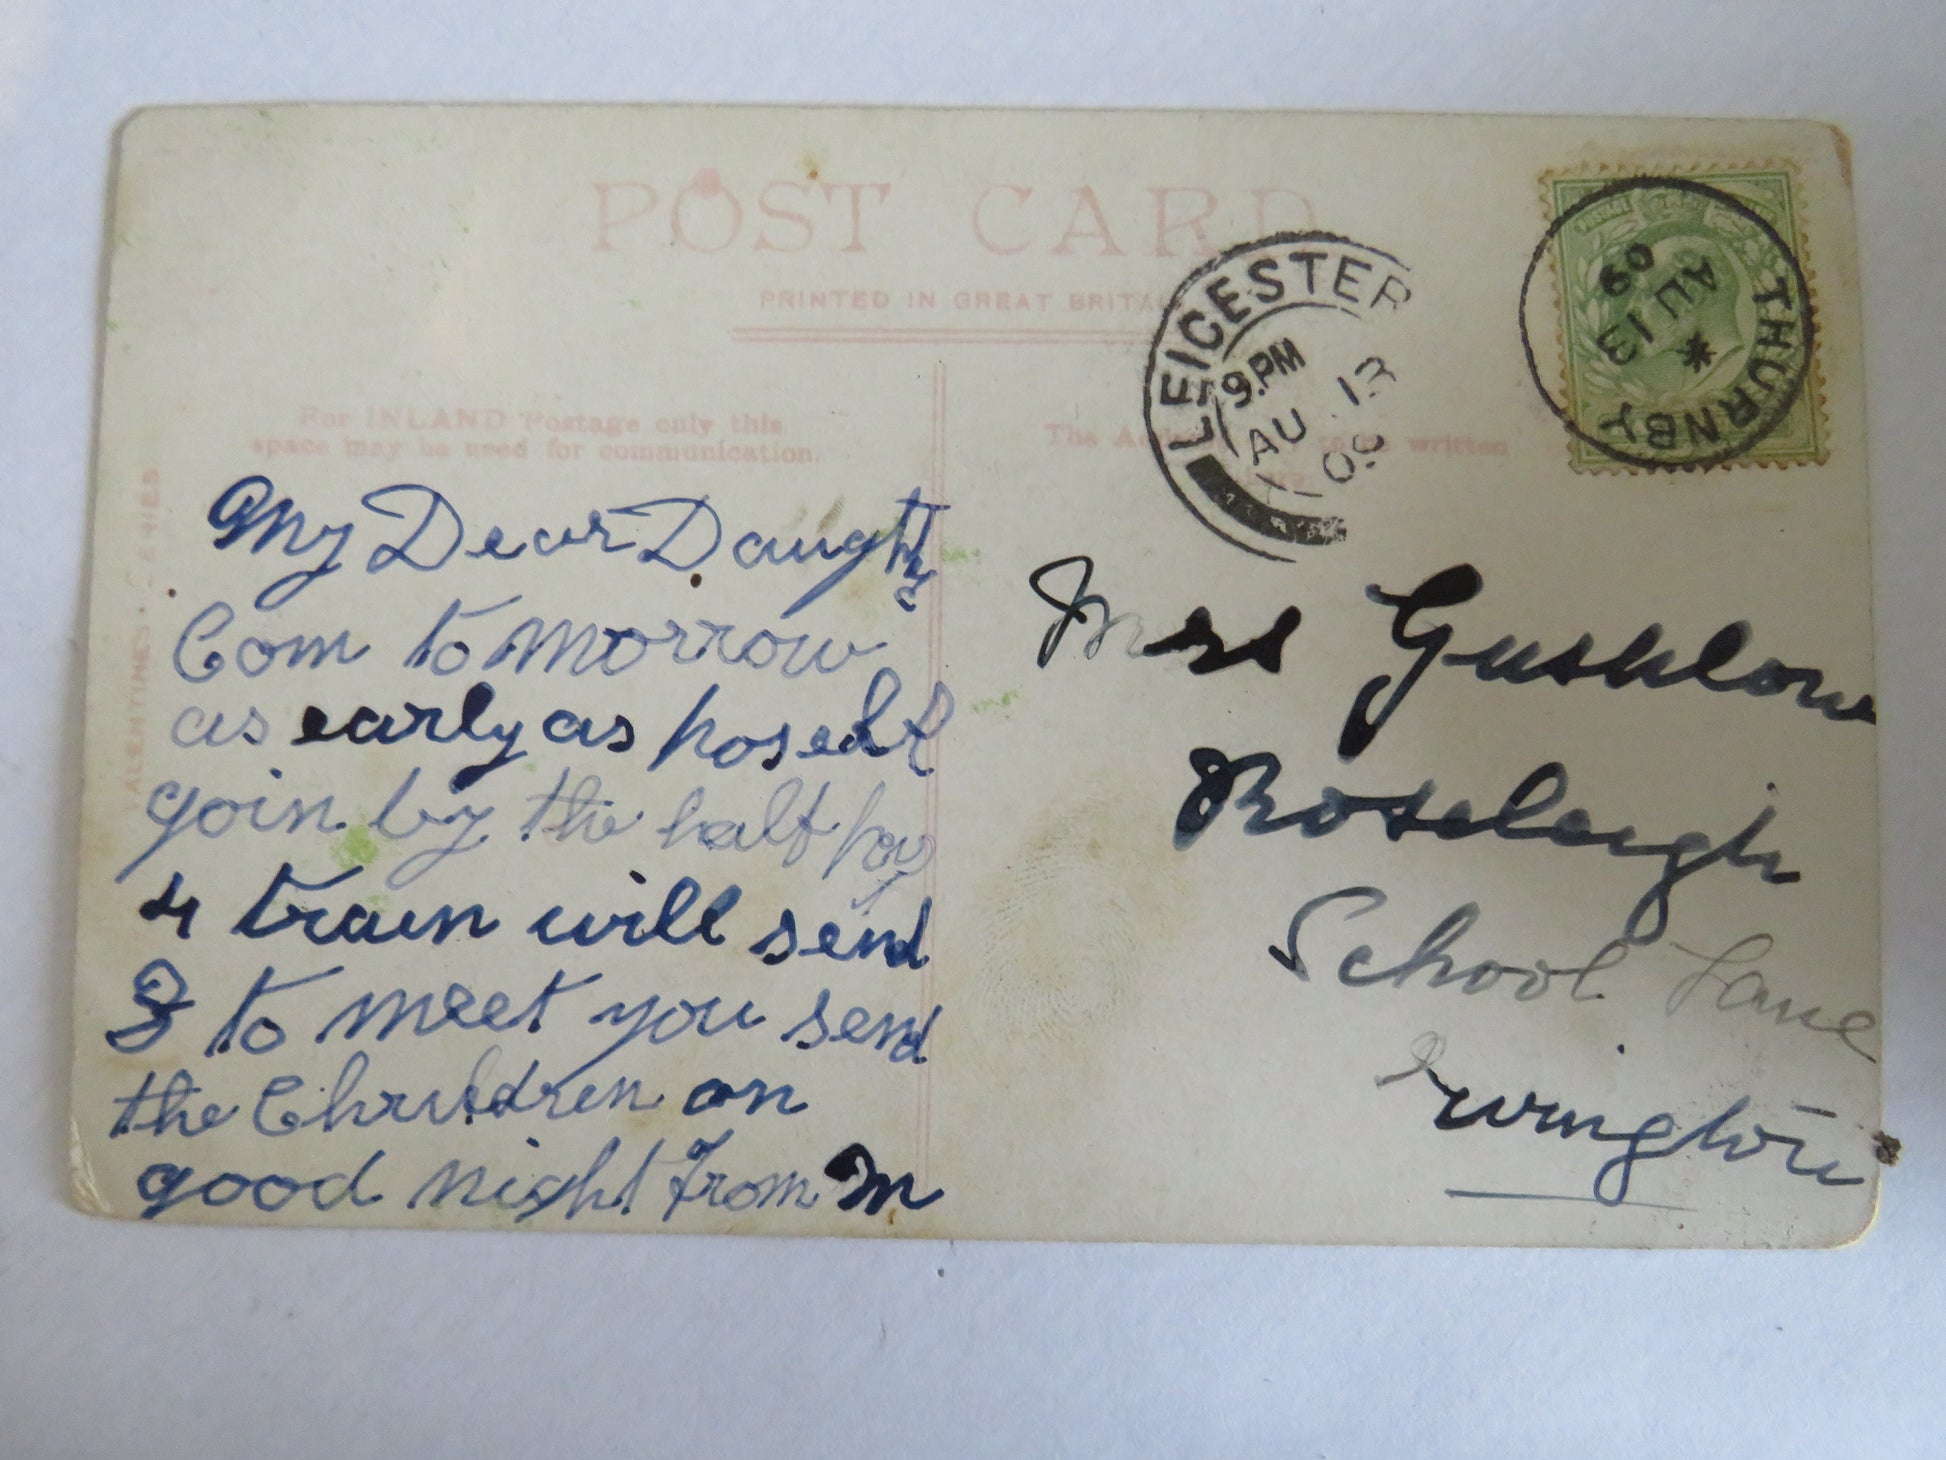 POST CARD
PRINTED IN GREAT BRITAI
For INLAND Postage only this
space may be used for communication.
The Ad to be written
VALENTINES SERIES
LEICESTER
9.PM
AU 13
09
THURNBY
AU 13
09
My Dear Daught
Com to morrow
as early as
goin by the half pas
4 train will send
to meet you send
the Children on
good night From M
Mrs
Roseleigh
School Lane